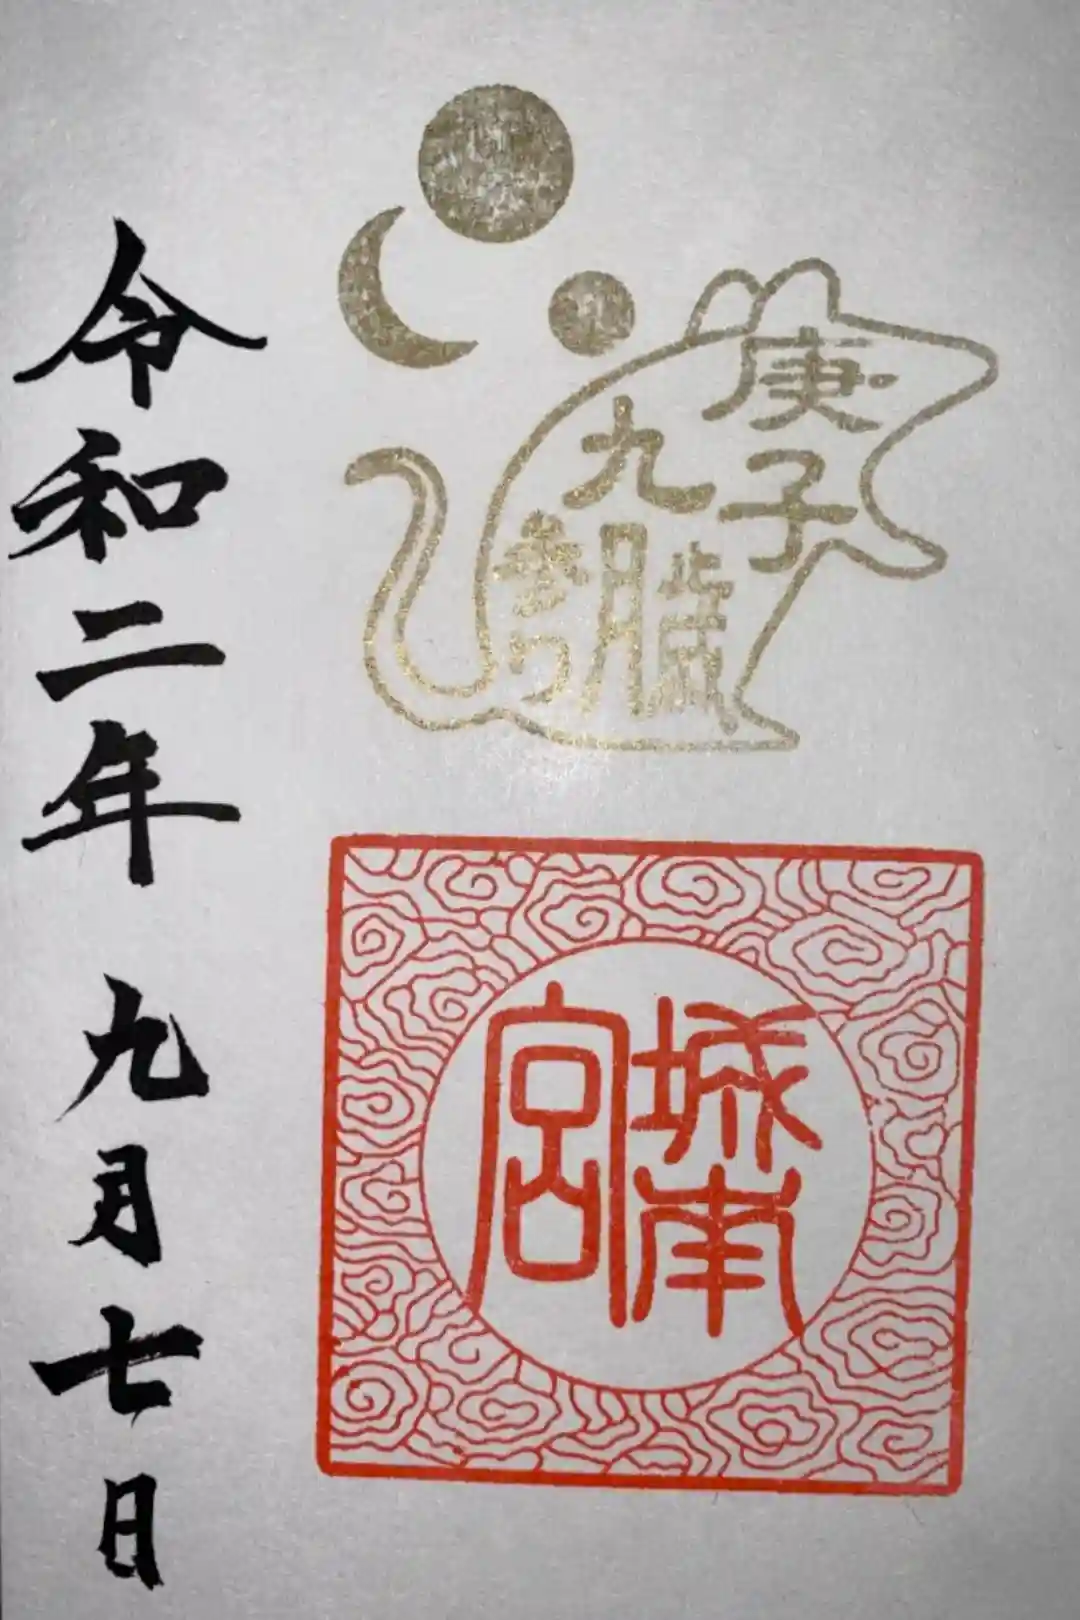 庚子歳
九月
参り
城南
宮
令和二年 九月七日